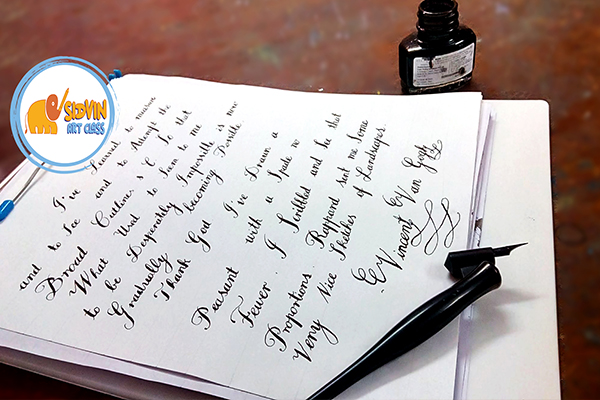 SIDVIN
ART CLASS
I've Learned to measure
and to See and to Attempt the
Broad Outlines So that
What Used to Seem to me
to be Desperately Impossible is now
Gradually becoming Possible
Thank God I've Drawn a
Peasant with a Spade no
Fewer . I Scribbled and he that
Proportions. Rappard sent me Some
Very Nice Sketches of Landscapes
Vincent Van Gogh